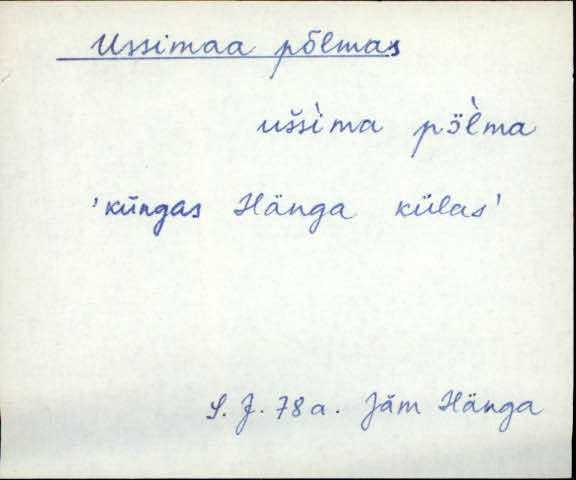 Ussimaa põlmas
uššìma pɔ̈̀lma
'küngas Hänga külas'
S. J. 78a. Jäm Hänga